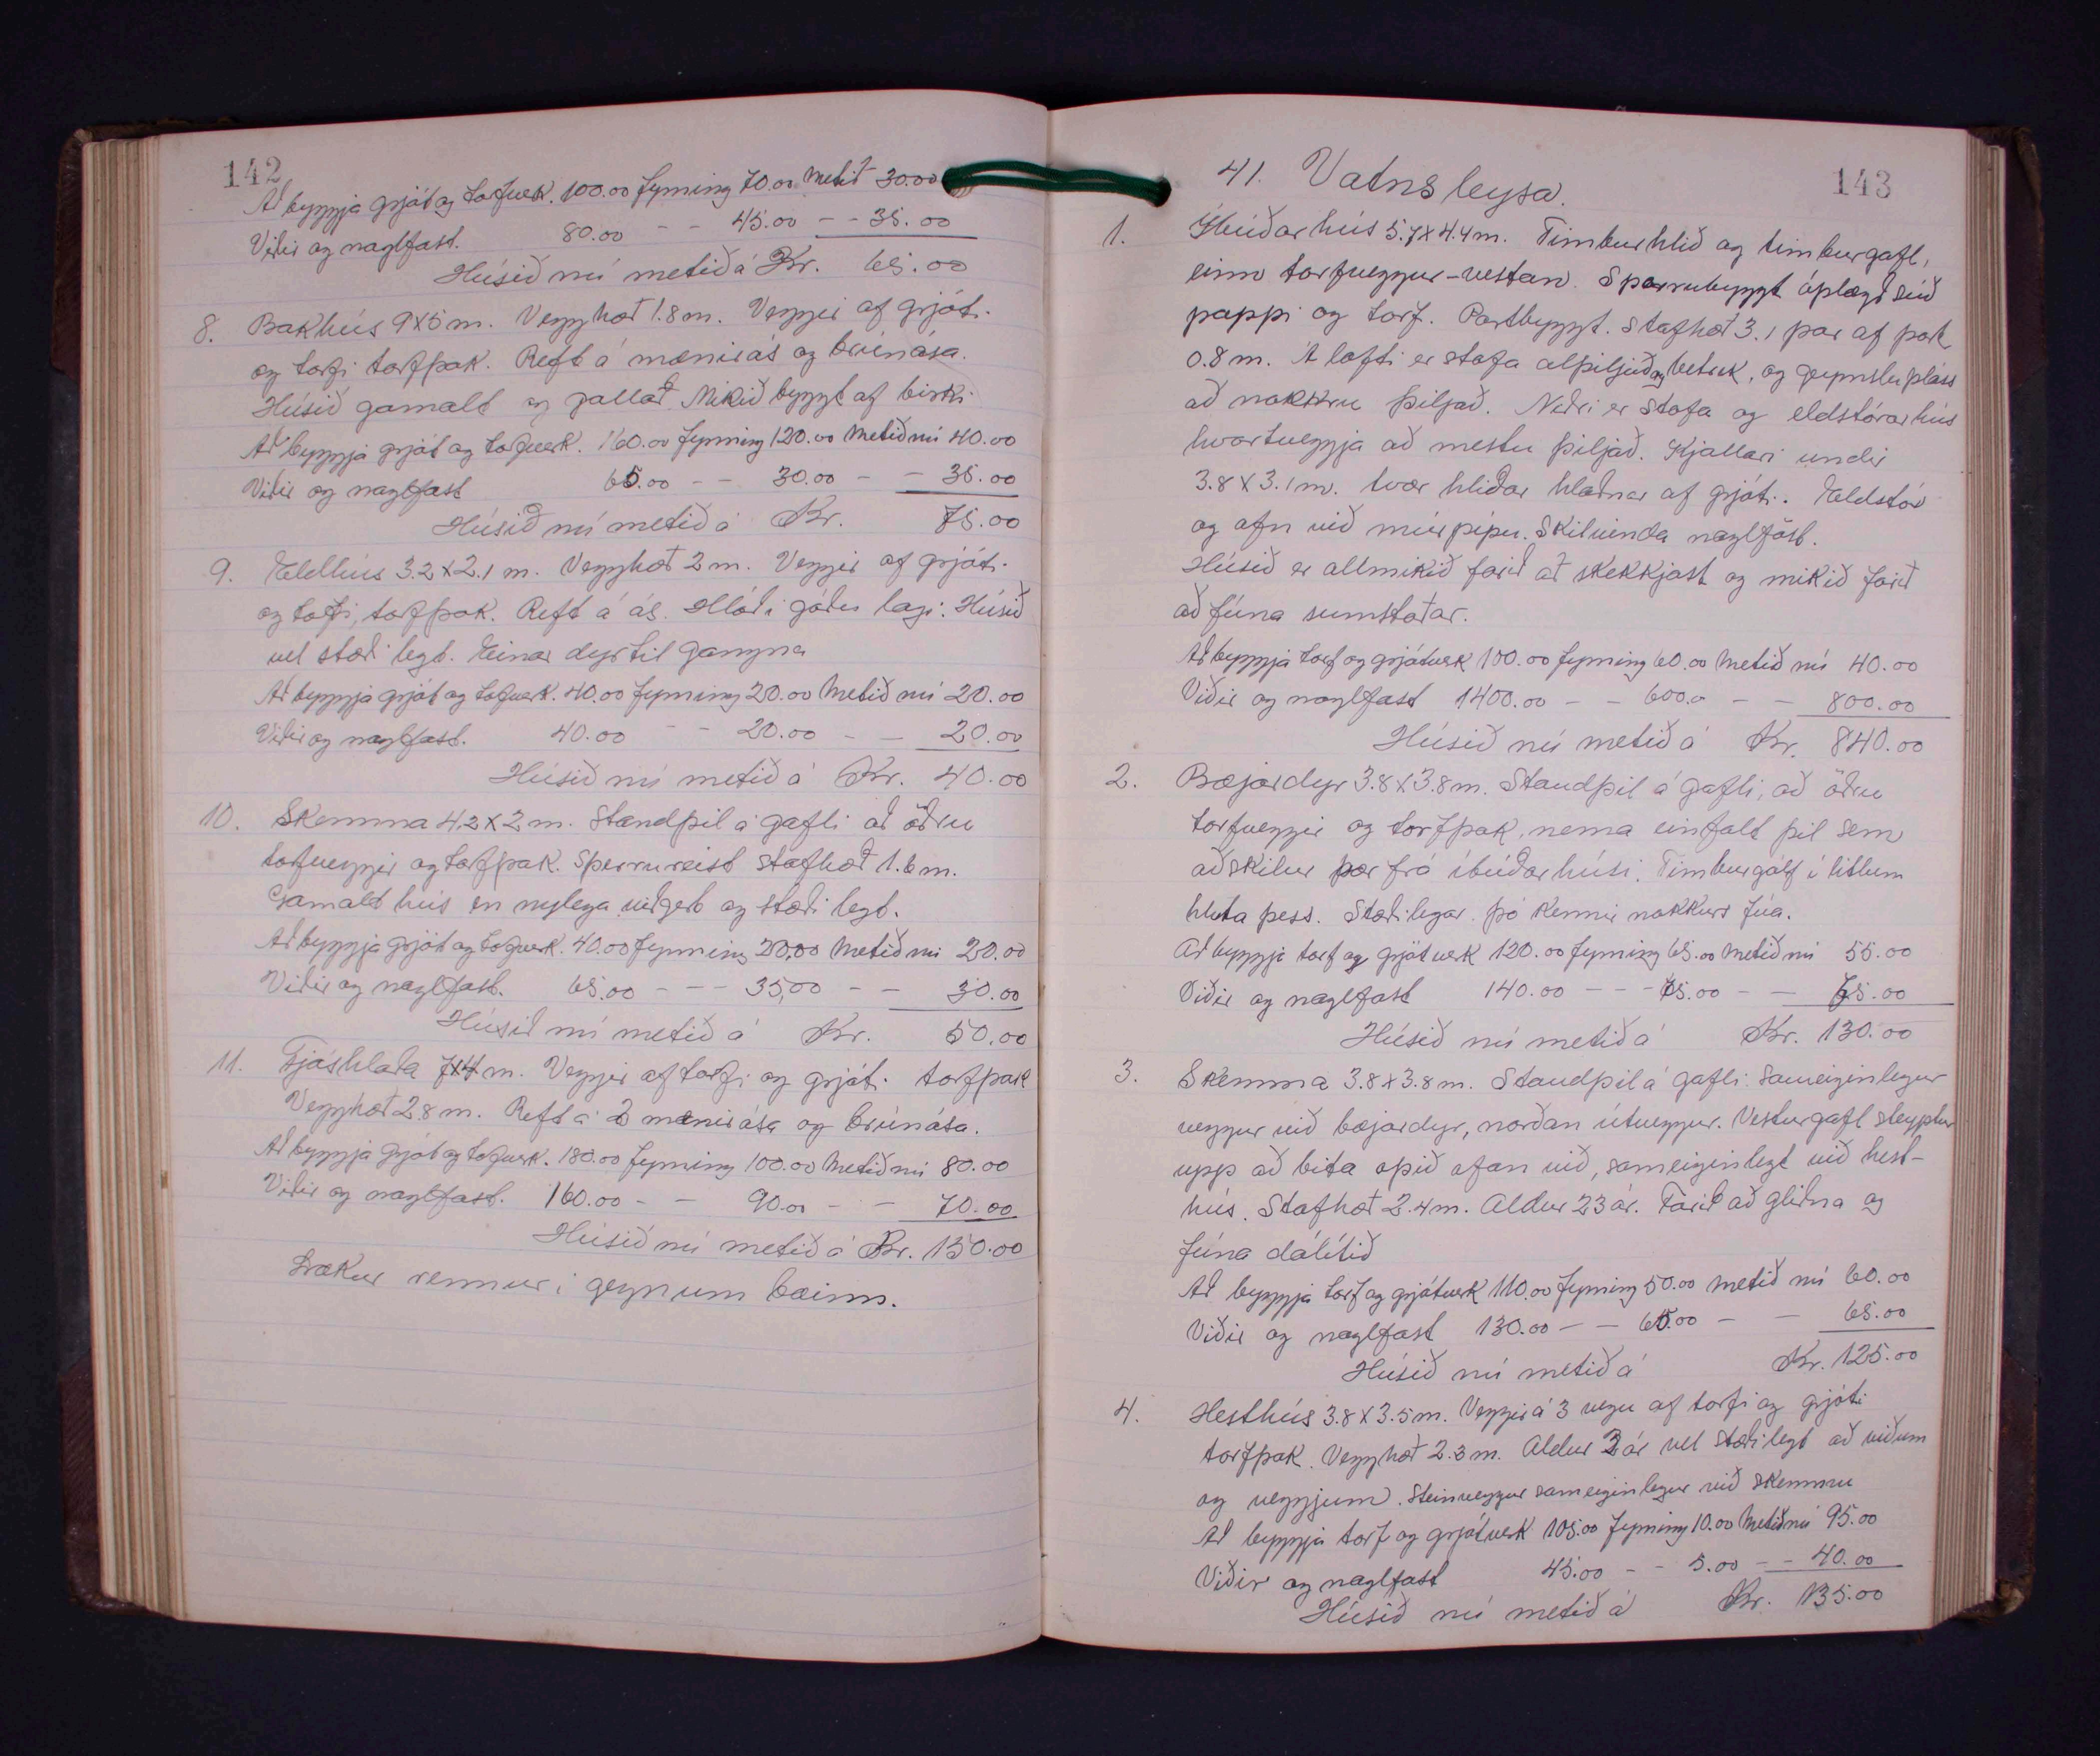 142
Að byggja grjót og torfverk. 100.00 fyrning 70.00 Metið 30.00
Viðir og naglfast. 80.00 - - 45.00 - - 35.00
Húsið nú metið á Kr. 65.00
8. Bakhús 9x5 m. Vegghæð 1.8 m. Veggir af grjóti
og torfi torfþak. Reft á mænirás og brúnása.
Húsið gamalt og gallað. Mikið byggt af birki
Að byggja grjót og torfverk. 160.00 fyrning 120.00 Metið nú 40.00
Viðir og naglfast 65.00 - - 30.00 - - 35.00
Húsið nú metið á Kr. 75.00
9. Eldhús 3.2x2.1 m. Vegghæð 2 m. Veggir af grjóti
og torfi, torfþak. Reft á ás. Hlóði góðu lagi. Húsið
vel stæðilegt. Einar dyr til gangna
Að byggja grjót og torfverk. 40.00 fyrning 20.00 Metið nú 20.00
Viðir og naglfast. 40.00 - - 20.00 - - 20.00
Húsið nú metið á Kr. 40.00
10. Skemma 4.2x2 m. Standþil á gafli að öðru
torfveggir og torfþak. Sperrureist stafhæð 1.6 m.
Gamalt hús en nýlega viðgert og stæðilegt.
Að byggja grjót og torfverk. 40.00 fyrning 20.00 Metið nú 20.00
Viðir og naglfast. 65.00 - - - 35,00 - - 30.00
Húsið nú metið á Kr. 50.00
11. Fjóshlaða 7x4 m. Veggir af torfi og grjóti torfþak
Vegghæð 2.8 m. Reft á 2 mænirása og brúnása.
Að byggja grjót og torfverk. 180.00 fyrning 100.00 Metið nú 80.00
Viðir og naglfast. 160.00 - - 90.00 - - 70.00
Húsið nú metið á Kr. 150.00
Lækur rennur í gegnum bæinn.
143
41. Vatnsleysa.
1. Íbúðarhús 5.7x4.4 m. Timburhlið og timburgafl,
einn torfveggur-vestan. Sperrubyggt óplægð súð
pappi og torf. Portbyggt. Stafhæð 3.1 þar af þak
0.8 m. Á lofti er stofa alþiljuð og betrekt, og geymslupláss
að nokkru þiljað. Neðri er stofa og eldstórarhús
hvortveggja að mestu þiljað. Kjallari undir
3.8x3.1 m. tvær hliðar hlaðnar af grjóti. Eldstór
og ofn við múrpípu. Skilvinda naglföst.
Húsið er allmikið farið að skekkjast og mikið farið
að fúna sumstaðar.
Að byggja torf og grjótverk 100.00 fyrning 60.00 Metið nú 40.00
Viðir og naglfast 1400.00 - - 600.0 - - 800.00
Húsið nú metið á Kr. 840.00
2. Bæjardyr 3.8x3.8 m. Standþil á gafli, að öðru
torfveggir og torfþak, nema einfalt þil sem
aðskilur þær frá íbúðarhúsi. Timburgólf í litlum
hluta þess. Stæðilegar. þó kennir nokkurs fúa.
Að byggja torf og grjótverk 120.00 fyrning 65.00 Metið nú 55.00
Viðir og naglfast 140.00 - - - 65.00 - - 75.00
Húsið nú metið á Kr. 130.00
3. Skemma 3.8x3.8 m. Standþil á gafli. Sameiginlegur
veggur við bæjardyr, norðan útveggur. Vesturgafl steyptur
upp að bita opið ofan við, sameiginlegt við hest-
hús. Stafhæð 2.4 m. Aldur 23 ár. Farið að gliðna og
fúna dálítið
Að byggja torf og grjótverk 110.00 fyrning 50.00 Metið nú 60.00
Viðir og naglfast 130.00 - - 65.00 - - 65.00
Húsið nú metið á Kr. 125.00
4. Hesthús 3.8x3.5 m. Veggir á 3 vegu af torfi og grjóti
torfþak. Vegghæð 2.3 m. Aldur 2 ár vel stæðilegt að viðum
og veggjum. Steinveggur sameiginlegur við skemmu
Að byggja torf og grjótverk 105.00 fyrning 10.00 Metið nú 95.00
Viðir og naglfast 45.00 - - 5.00 - - 40.00
Húsið nú metið á Kr. 135.00